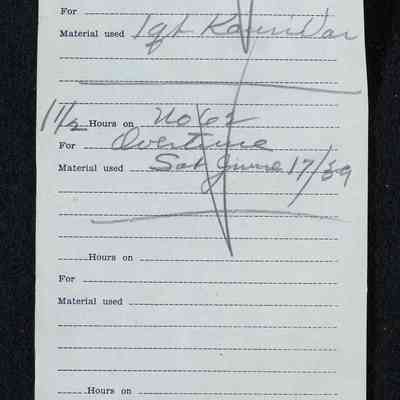 For
Material used 1qt
1 1/2 Hours on No 62
For Overtime
Material used Sat June 17/39
Hours on
For
Material used
Hours on